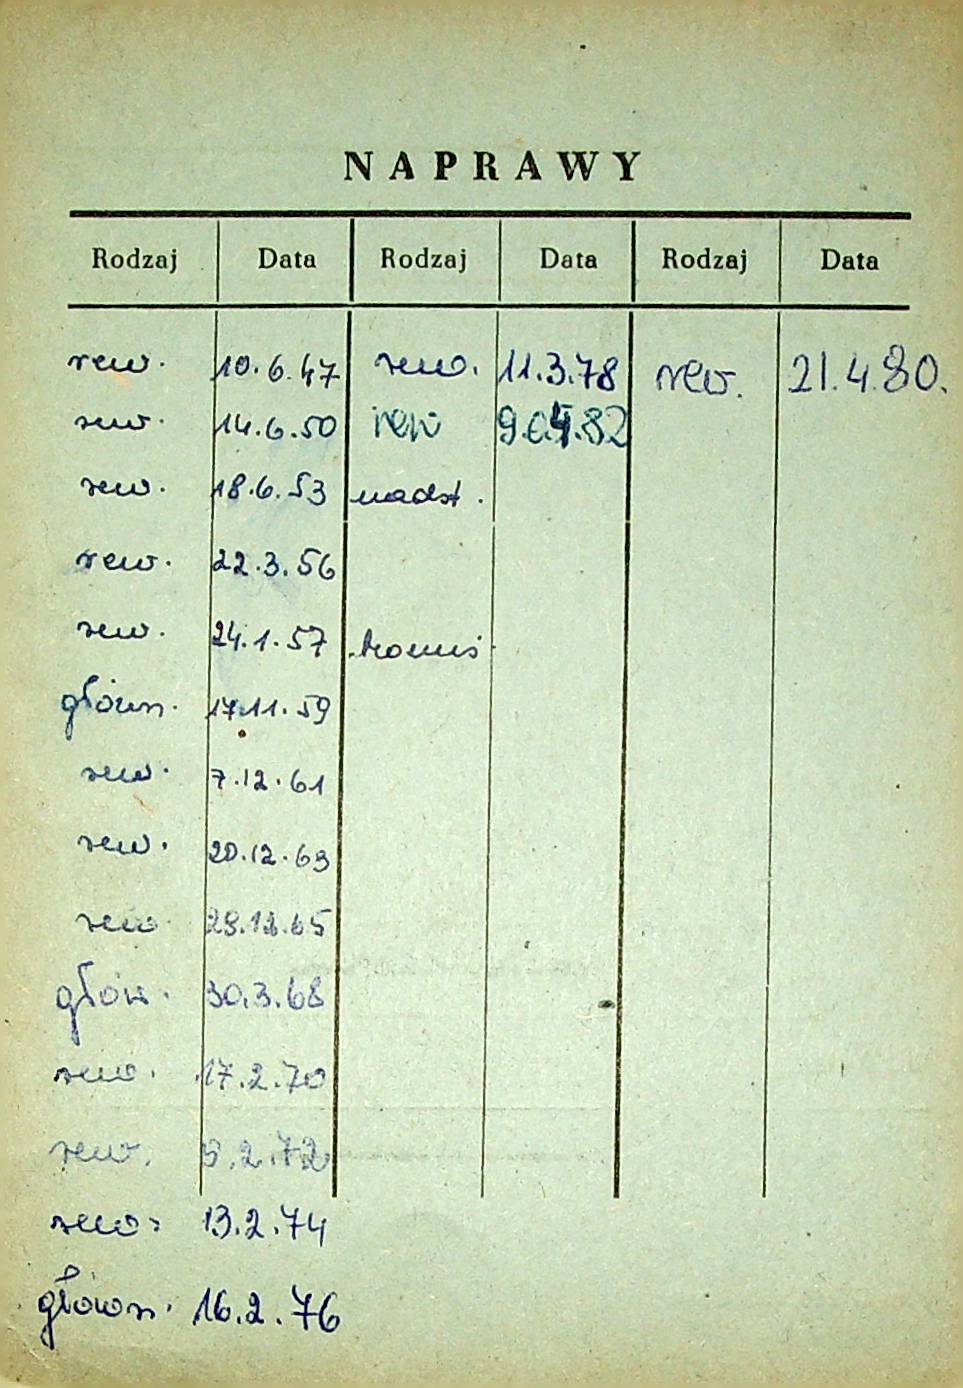 NAPRAWY
Rodzaj Data Rodzaj Data Rodzaj Data
rew. 10.6.47 rew. 11.3.78 rew. 21.4.80.
rew. 14.6.50 rew
rew. 18.6.53 nadst.
rew. 22.3.56
rew. 24.1.57
główn. 17.11.59
rew. 7.12.61
rew. 20.12.63
rew. 65
głów. 30.3.68
rew. 17.2.70
rew. 2.72
rew. 13.2.74
główn. 16.2.76